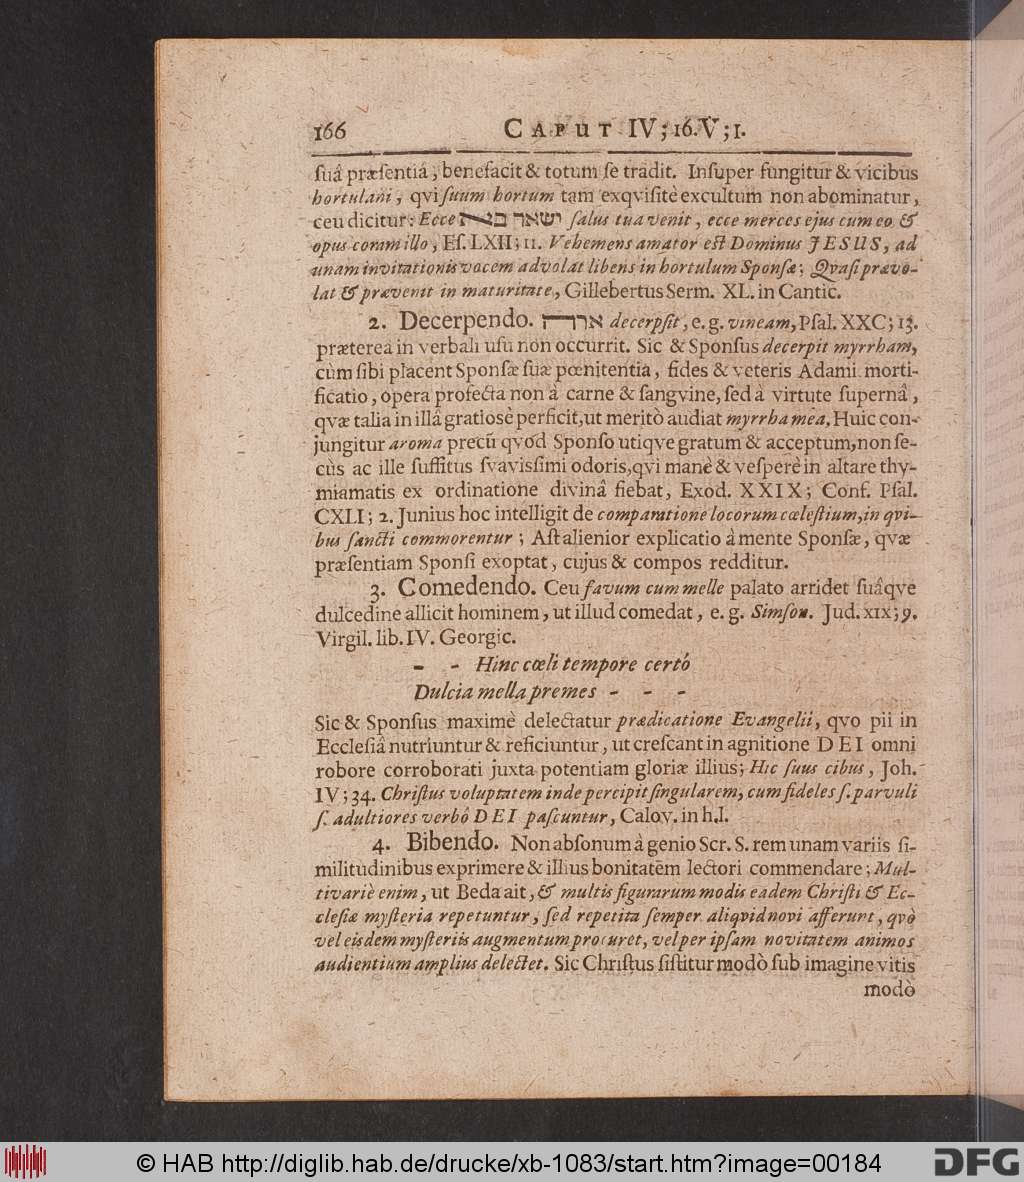 166 CAPUT IV; 16. V; 1.
ſuâ præſentiâ, benefacit & totum ſe tradit. Inſuper fungitur & vicibus
hortulani, qvi ſuum hortum tam exqviſitè excultum non abominatur,
ceu dicitur: Ecce ſalus tua venit, ecce merces ejus cum eo &
opus coram illo, Eſ. LXII; 11. Vehemens amator eſt Dominus JESUS, ad
unam invitationis vocem advolat libens in hortulum Sponſæ; Qvaſi prævo-
lat & prævenit in maturitate, Gillebertus Serm. XL. in Cantic.
2. Decerpendo. ארה decerpſit, e. g. vineam, Pſal. XXC; 13.
præterea in verbali uſu non occurrit. Sic & Sponſus decerpit myrrham,
cùm ſibi placent Sponſæ ſuæ pœnitentia, fides & veteris Adami morti-
ficatio, opera profecta non à carne & ſangvine, ſed à virtute ſupernâ,
qvæ talia in illâ gratiosè perficit, ut meritò audiat myrrha mea. Huic con-
jungitur aroma precū qvod Sponſo utiqve gratum & acceptum, non ſe-
cùs ac ille ſuffitus ſvaviſſimi odoris, qvi manè & veſperè in altare thy-
miamatis ex ordinatione divinâ fiebat, Exod. XXIX; Conf. Pſal.
CXLI; 2. Junius hoc intelligit de comparatione locorum cœleſtium, in qvi-
bus ſancti commorentur; Aſt alienior explicatio à mente Sponſæ, qvæ
præſentiam Sponſi exoptat, cujus & compos redditur.
3. Comedendo. Ceu favum cum melle palato arridet ſuâqve
dulcedine allicit hominem, ut illud comedat, e. g. Simſon. Jud. XIX; 9.
Virgil. lib. IV. Georgic.
- - Hinc cœli tempore certô
Dulcia mella premes - - -
Sic & Sponſus maximè delectatur prædicatione Evangelii, qvo pii in
Eccleſiâ nutriuntur & reficiuntur, ut creſcant in agnitione DEI omni
robore corroborati juxta potentiam gloriæ illius; Hic ſuus cibus, Joh.
IV; 34. Chriſtus voluptatem inde percipit ſingularem, cum fideles ſ. parvuli
ſ. adultiores verbô DEI paſcuntur, Calov. in h. l.
4. Bibendo. Non abſonum à genio Scr. S. rem unam variis ſi-
militudinibus exprimere & illius bonitatem lectori commendare; Mul-
tivariè enim, ut Beda ait, & multis figurarum modis eadem Chriſti & Ec-
cleſiæ myſteria repetuntur, ſed repetita ſemper aliqvid novi afferunt, qvò
vel eisdem myſteriis augmentum procuret, vel per ipſam novitatem animos
audientium amplius delectet. Sic Chriſtus ſiſtitur modò ſub imagine vitis
modò
© HAB http://diglib.hab.de/drucke/xb-1083/start.htm?image=00184
DFG